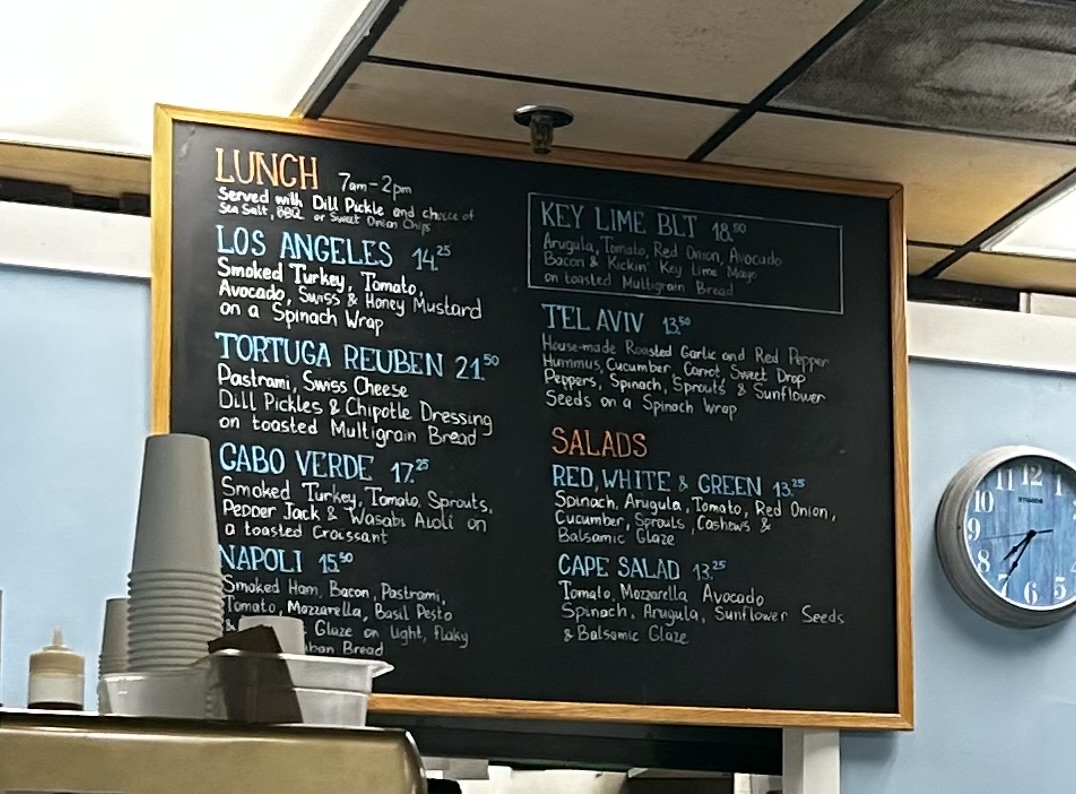 LUNCH 7am-2pm
Served with Dill Pickle and choice of
Sea Salt, BBQ or Sweet Onion Chips
LOS ANGELES 14.25
Smoked Turkey, Tomato,
Avocado, Swiss & Honey Mustard
on a Spinach Wrap
TORTUGA REUBEN 21.50
Pastrami, Swiss Cheese
Dill Pickles & Chipotle Dressing
on toasted Multigrain Bread
CABO VERDE 17.25
Smoked Turkey, Tomato, Sprouts,
Pepper Jack & Wasabi Aioli on
a toasted Croissant
NAPOLI 15.50
Smoked Ham, Bacon, Pastrami,
Tomato, Mozzarella, Basil Pesto
& Glaze on light, flaky
Bread
KEY LIME BLT 18.50
Arugula, Tomato, Red Onion, Avocado
Bacon & Kickin' Key Lime Mayo
on toasted Multigrain Bread
TEL AVIV 13.50
House-made Roasted Garlic and Red Pepper
Hummus, Cucumber, Carrot, Sweet Drop
Peppers, Spinach, Sprouts & Sunflower
Seeds on a Spinach Wrap
SALADS
RED, WHITE & GREEN 13.25
Spinach, Arugula, Tomato, Red Onion,
Cucumber, Sprouts, Cashews &
Balsamic Glaze
CAPE SALAD 13.25
Tomato, Mozzarella Avocado
Spinach, Arugula, Sunflower Seeds
& Balsamic Glaze
11 12 1
10
9
7 6 5